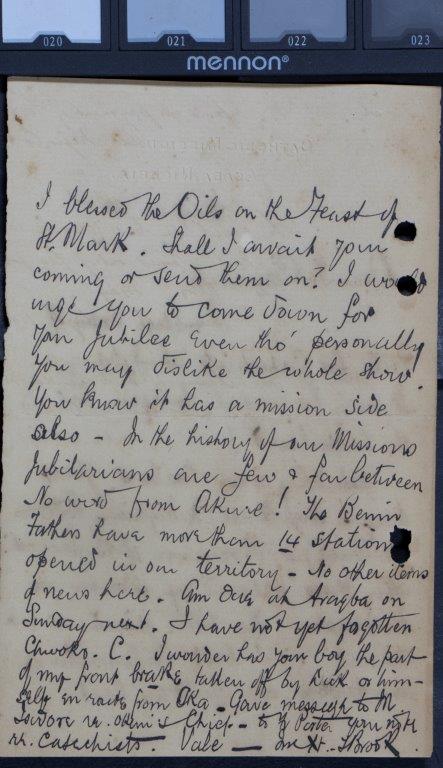 020 021 022 023
mennon®
I blessed the Oils on the Feast of
St. Mark. Shall I await your
coming or send them on? I would
urge you to come down for
your Jubilee even tho' personally
you may dislike the whole show.
You know it has a mission side
also - In the history of our Missions
Jubilarians are few & far between
No word from Akure! The Benin
Fathers have more than 14 stations
opened in our territory - No other items
of news here. Am due at Aragba on
Sunday next. I have not yet forgotten
C. I wonder has your boy the part
of my front brake taken off by Dick or him-
self en route from Oka - Gave message to M.
Isidore re. Chief - to
re. Catechists. Vale -